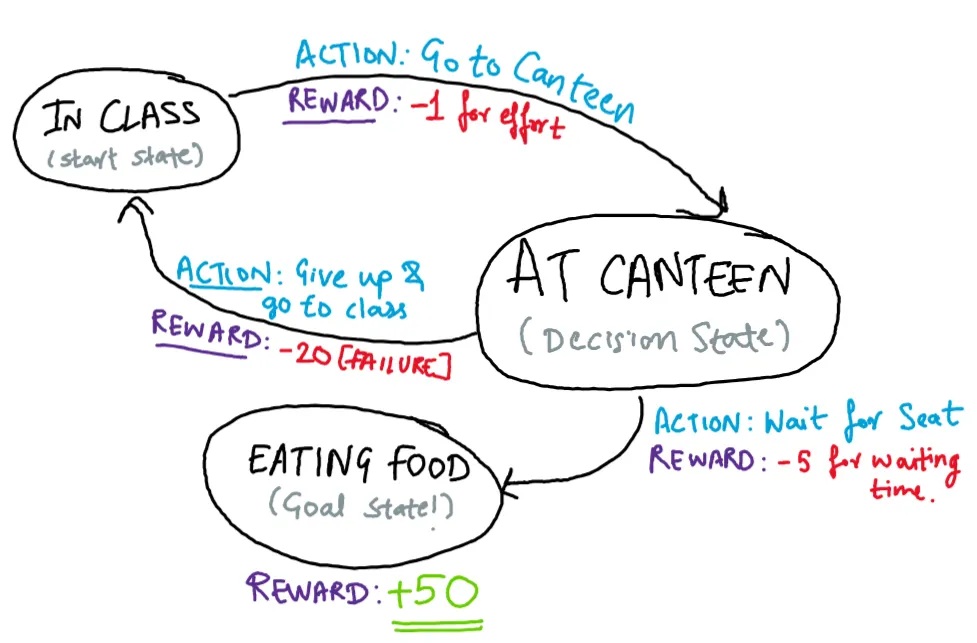 ACTION: Go to Canteen
REWARD: -1 for effort
IN CLASS
(start state)
AT CANTEEN
(Decision State)
ACTION: Give up &
go to class
REWARD: -20 [FAILURE]
ACTION: Wait for Seat
REWARD: -5 for waiting
time.
EATING FOOD
(Goal State!)
REWARD: +50